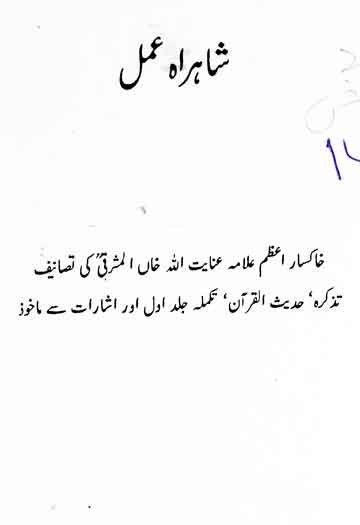 شاہراہ عمل
خاکسار اعظم علامہ عنایت اللہ خاں المشرقیؒ کی تصانیف
تذکرہ‘ حدیث القرآن‘ تکملہ جلد اول اور اشارات سے ماخوذ